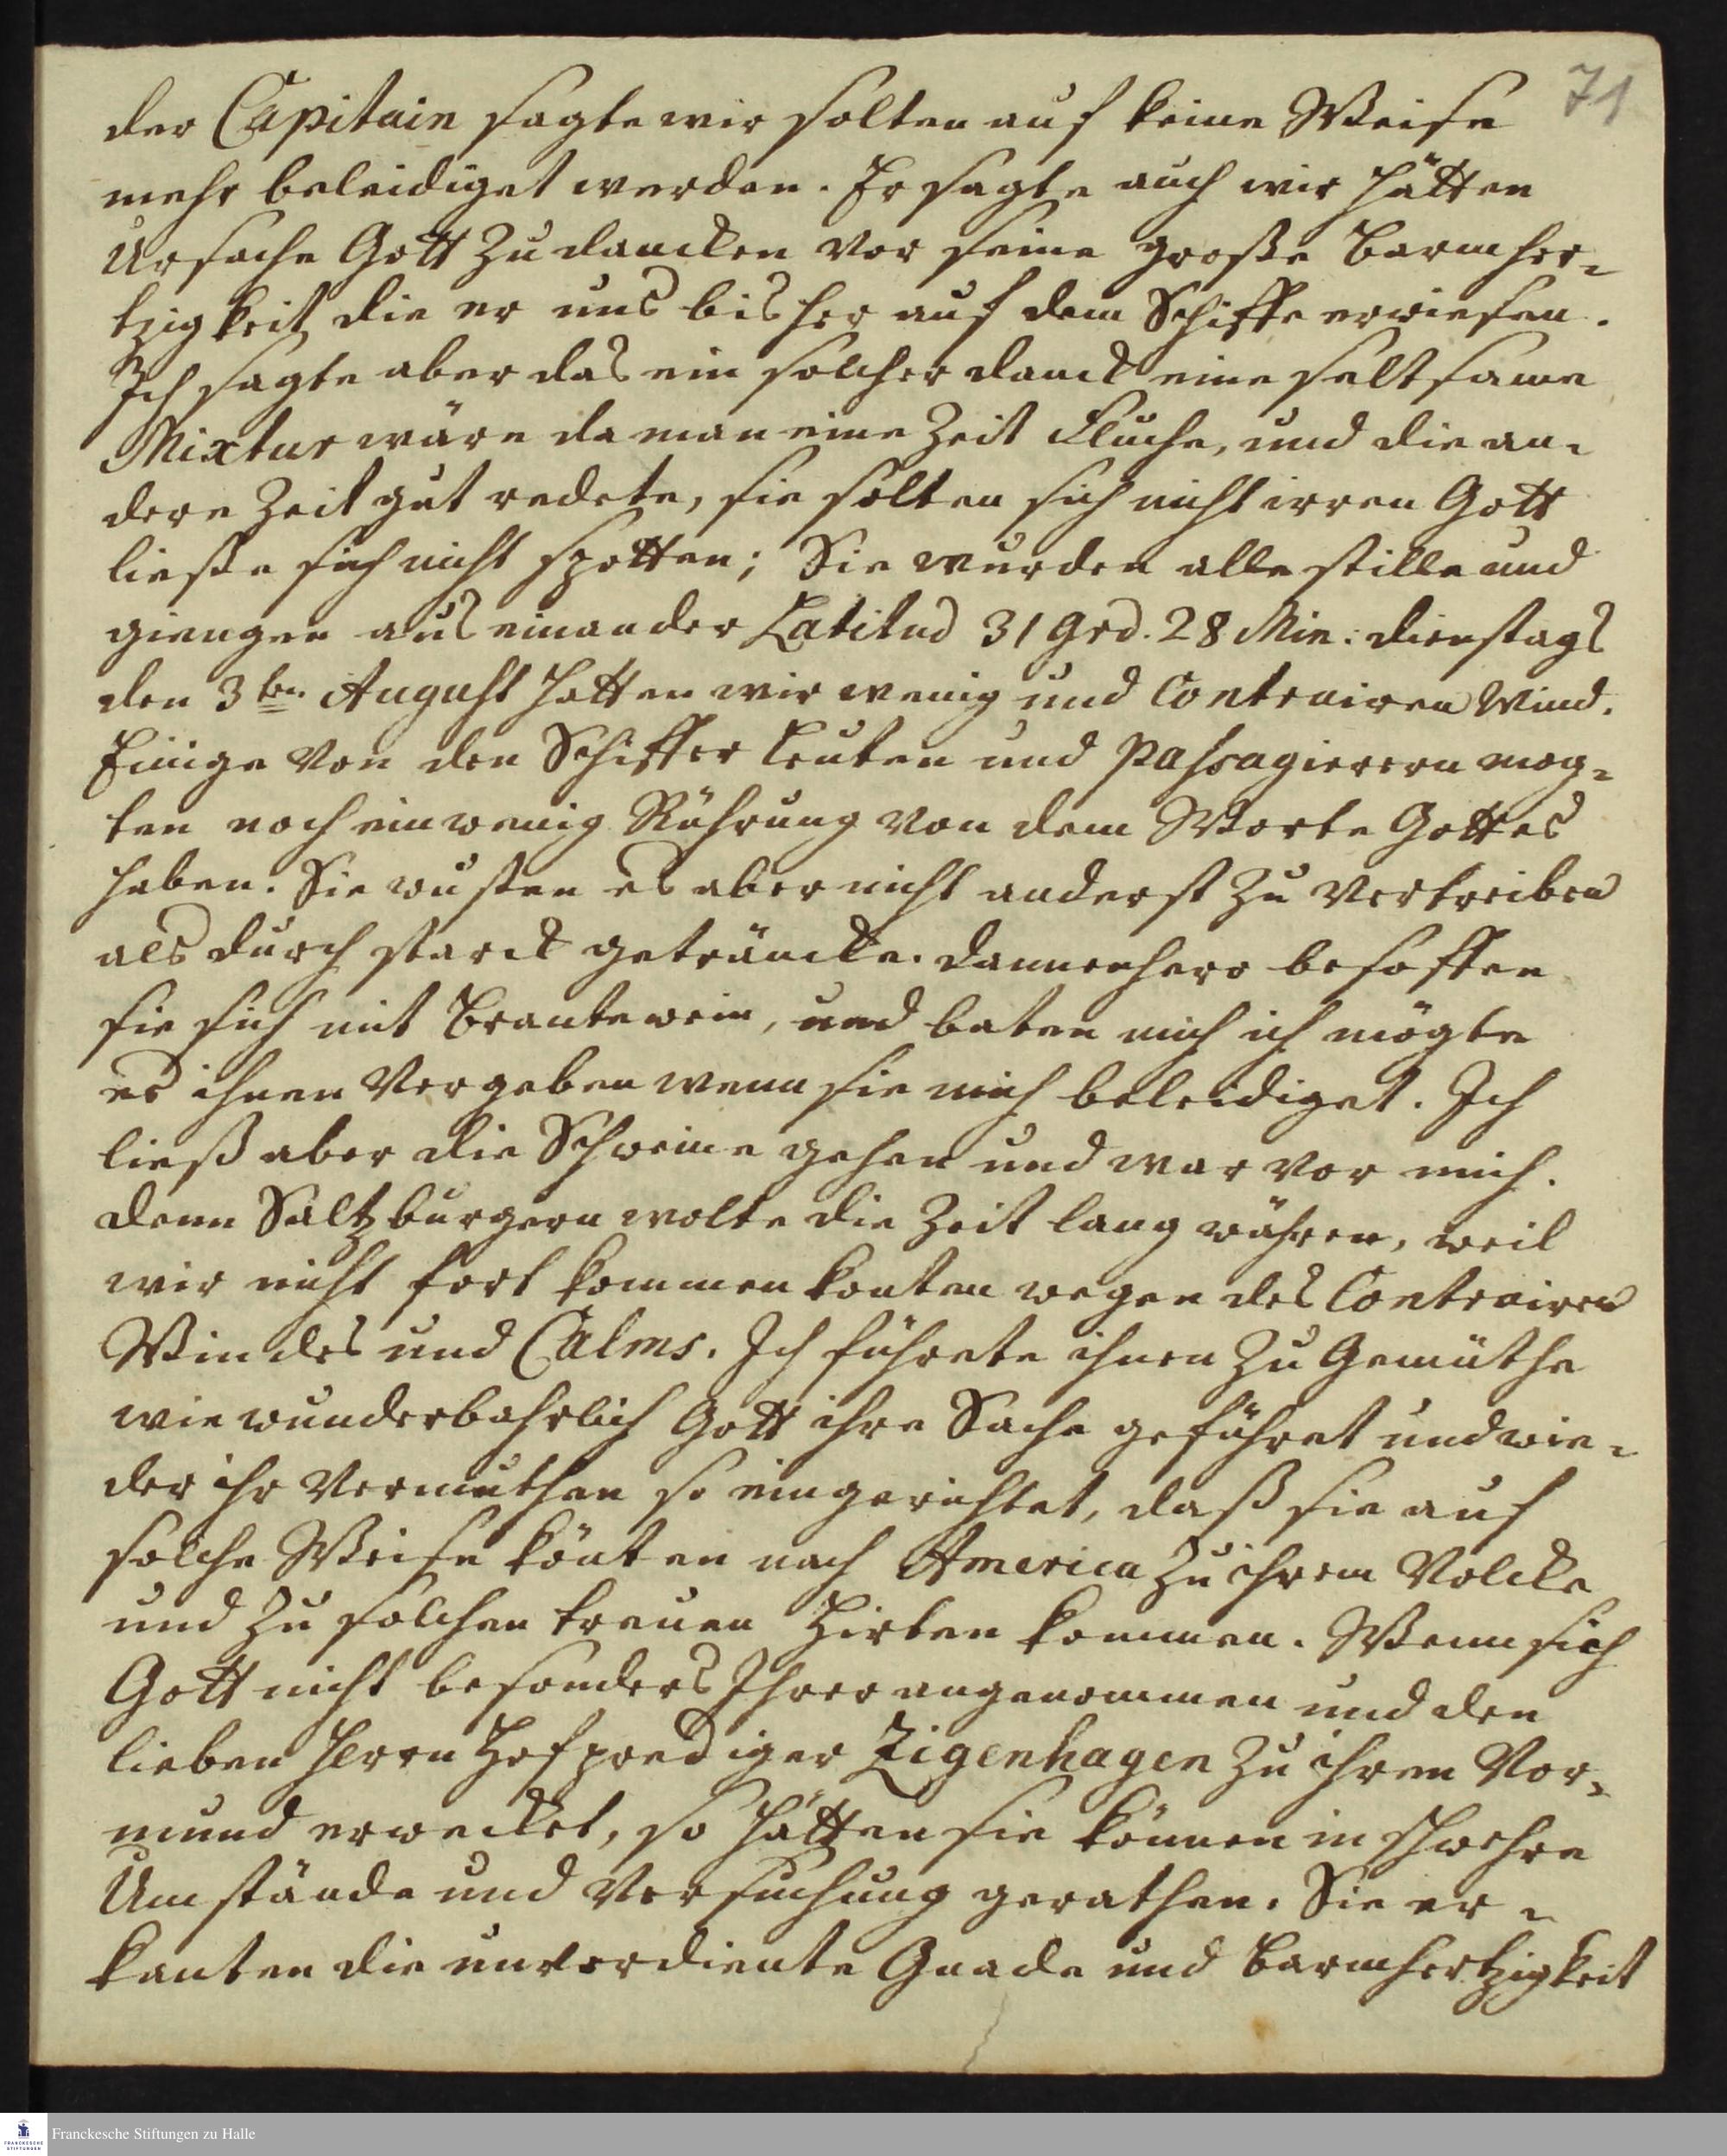 71
der Capitain sagte wir solten auf keine Weise
mehr beleidiget werden. Er sagte auch wir hätten
Ursache Gott zu dancken vor seine große Barmher-
tzigkeit die er uns bisher auf dem Schiffe erwiesen.
Ich sagte aber das ein solcher danck eine seltsame
Mixtur wäre da man eine Zeit fluche, und die an-
dere Zeit gut redete, sie solten sich nicht irren Gott
ließe sich nicht spotten; Sie wurden alle stille und
giengen aus einander Latitud 31 Grd. 28 Min: dienstags
den 3ten. August hatten wir wenig und Contrairen Wind.
Einige von den Schiffer Leuten und Passagierern mog-
ten noch ein wenig Rührung von dem Worte Gottes
haben. Sie wusten es aber nicht anderst zu vertreiben
als durch starck geträncke. dannenhero besoffen
sie sich mit Brantewein, und baten mich ich mögte
es ihnen vergeben wenn sie mich beleidiget. Ich
ließ aber die Schweine gehen und war vor mich.
denn Saltzburgern wolte die Zeit lang währen, weil
wir nicht fort kommen konten wegen des Contrairen
Windes und Calms. Ich führete ihnen zu Gemüthe
wie wunderbahrlich Gott ihre Sache geführet und wie-
der ihr Vermuthen so eingerichtet, daß sie auf
solche Weise könten nach America zu ihrem Volcke
und zu solchen treuen Hirten kommen. Wenn sich
Gott nicht besonders Ihrer angenommen und den
lieben Herrn Hofprediger Zigenhagen zu ihren Vor-
mund erwecket, so hätten sie können in schwehre
Umstände und Versuchung gerathen. Sie er-
kanten die unverdiente Gnade und Barmhertzigkeit
Franckesche Stiftungen zu Halle
FRANCKESCHE
STIFTUNGEN